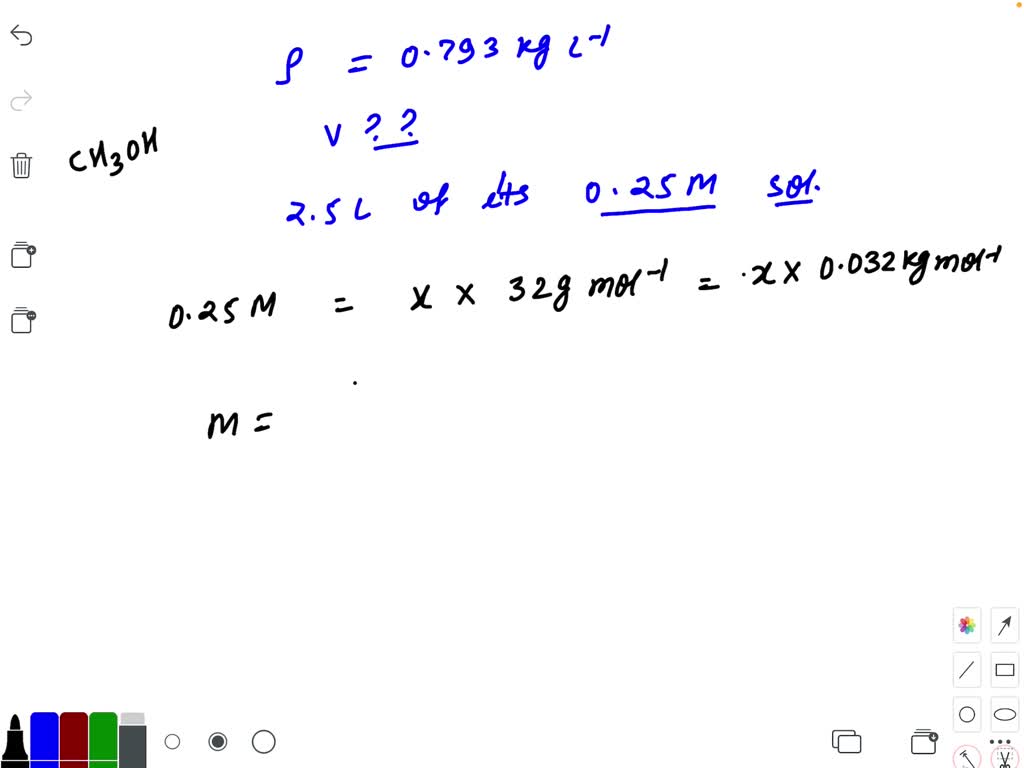 ρ = 0.793 kg L⁻¹
V ??
CH₃OH
2.5 L of its 0.25 M sol.
0.25 M = x × 32 g mol⁻¹ = .x × 0.032 kg mol⁻¹
M =